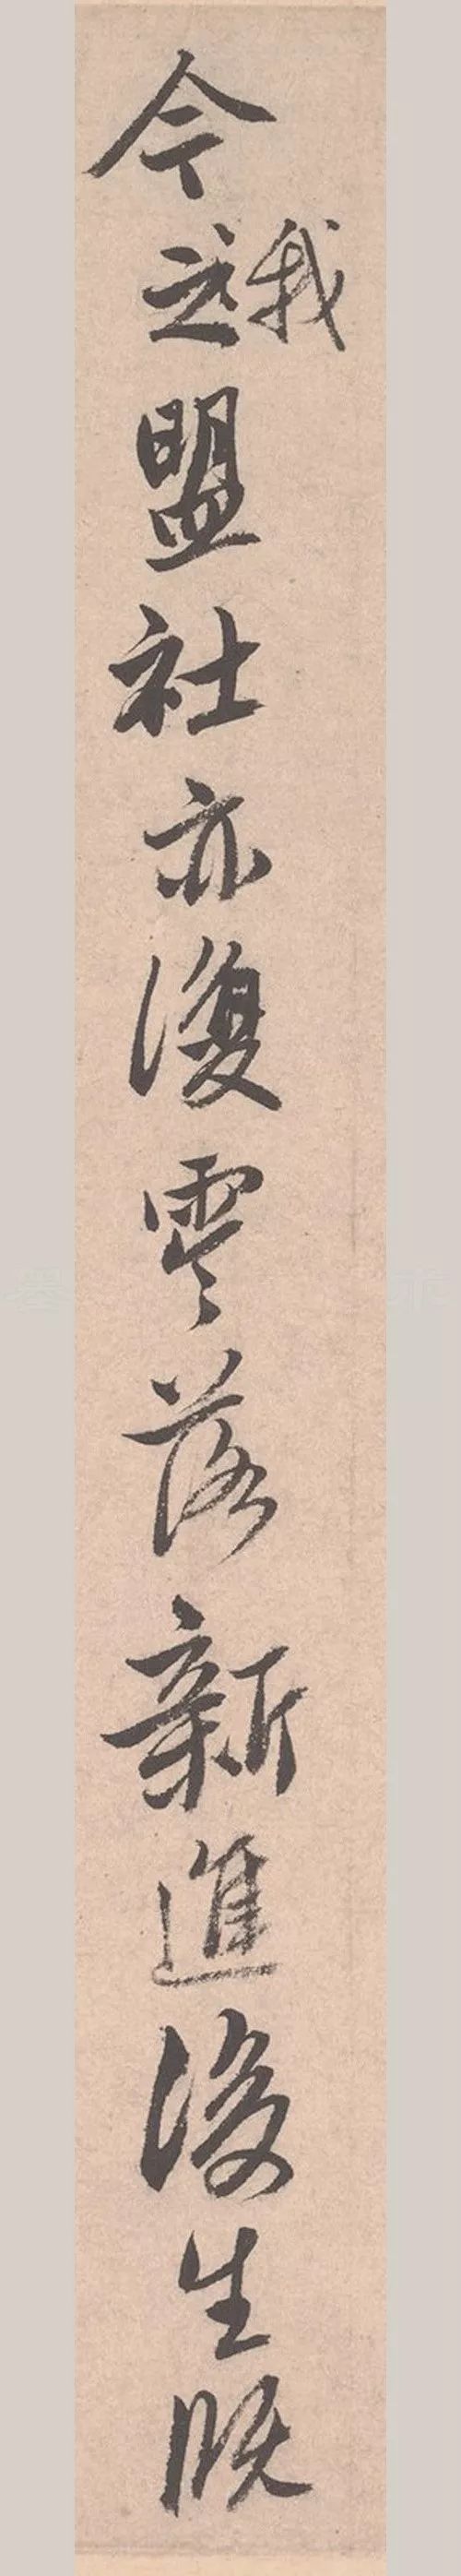 今之我盟社亦復零落新進後生既